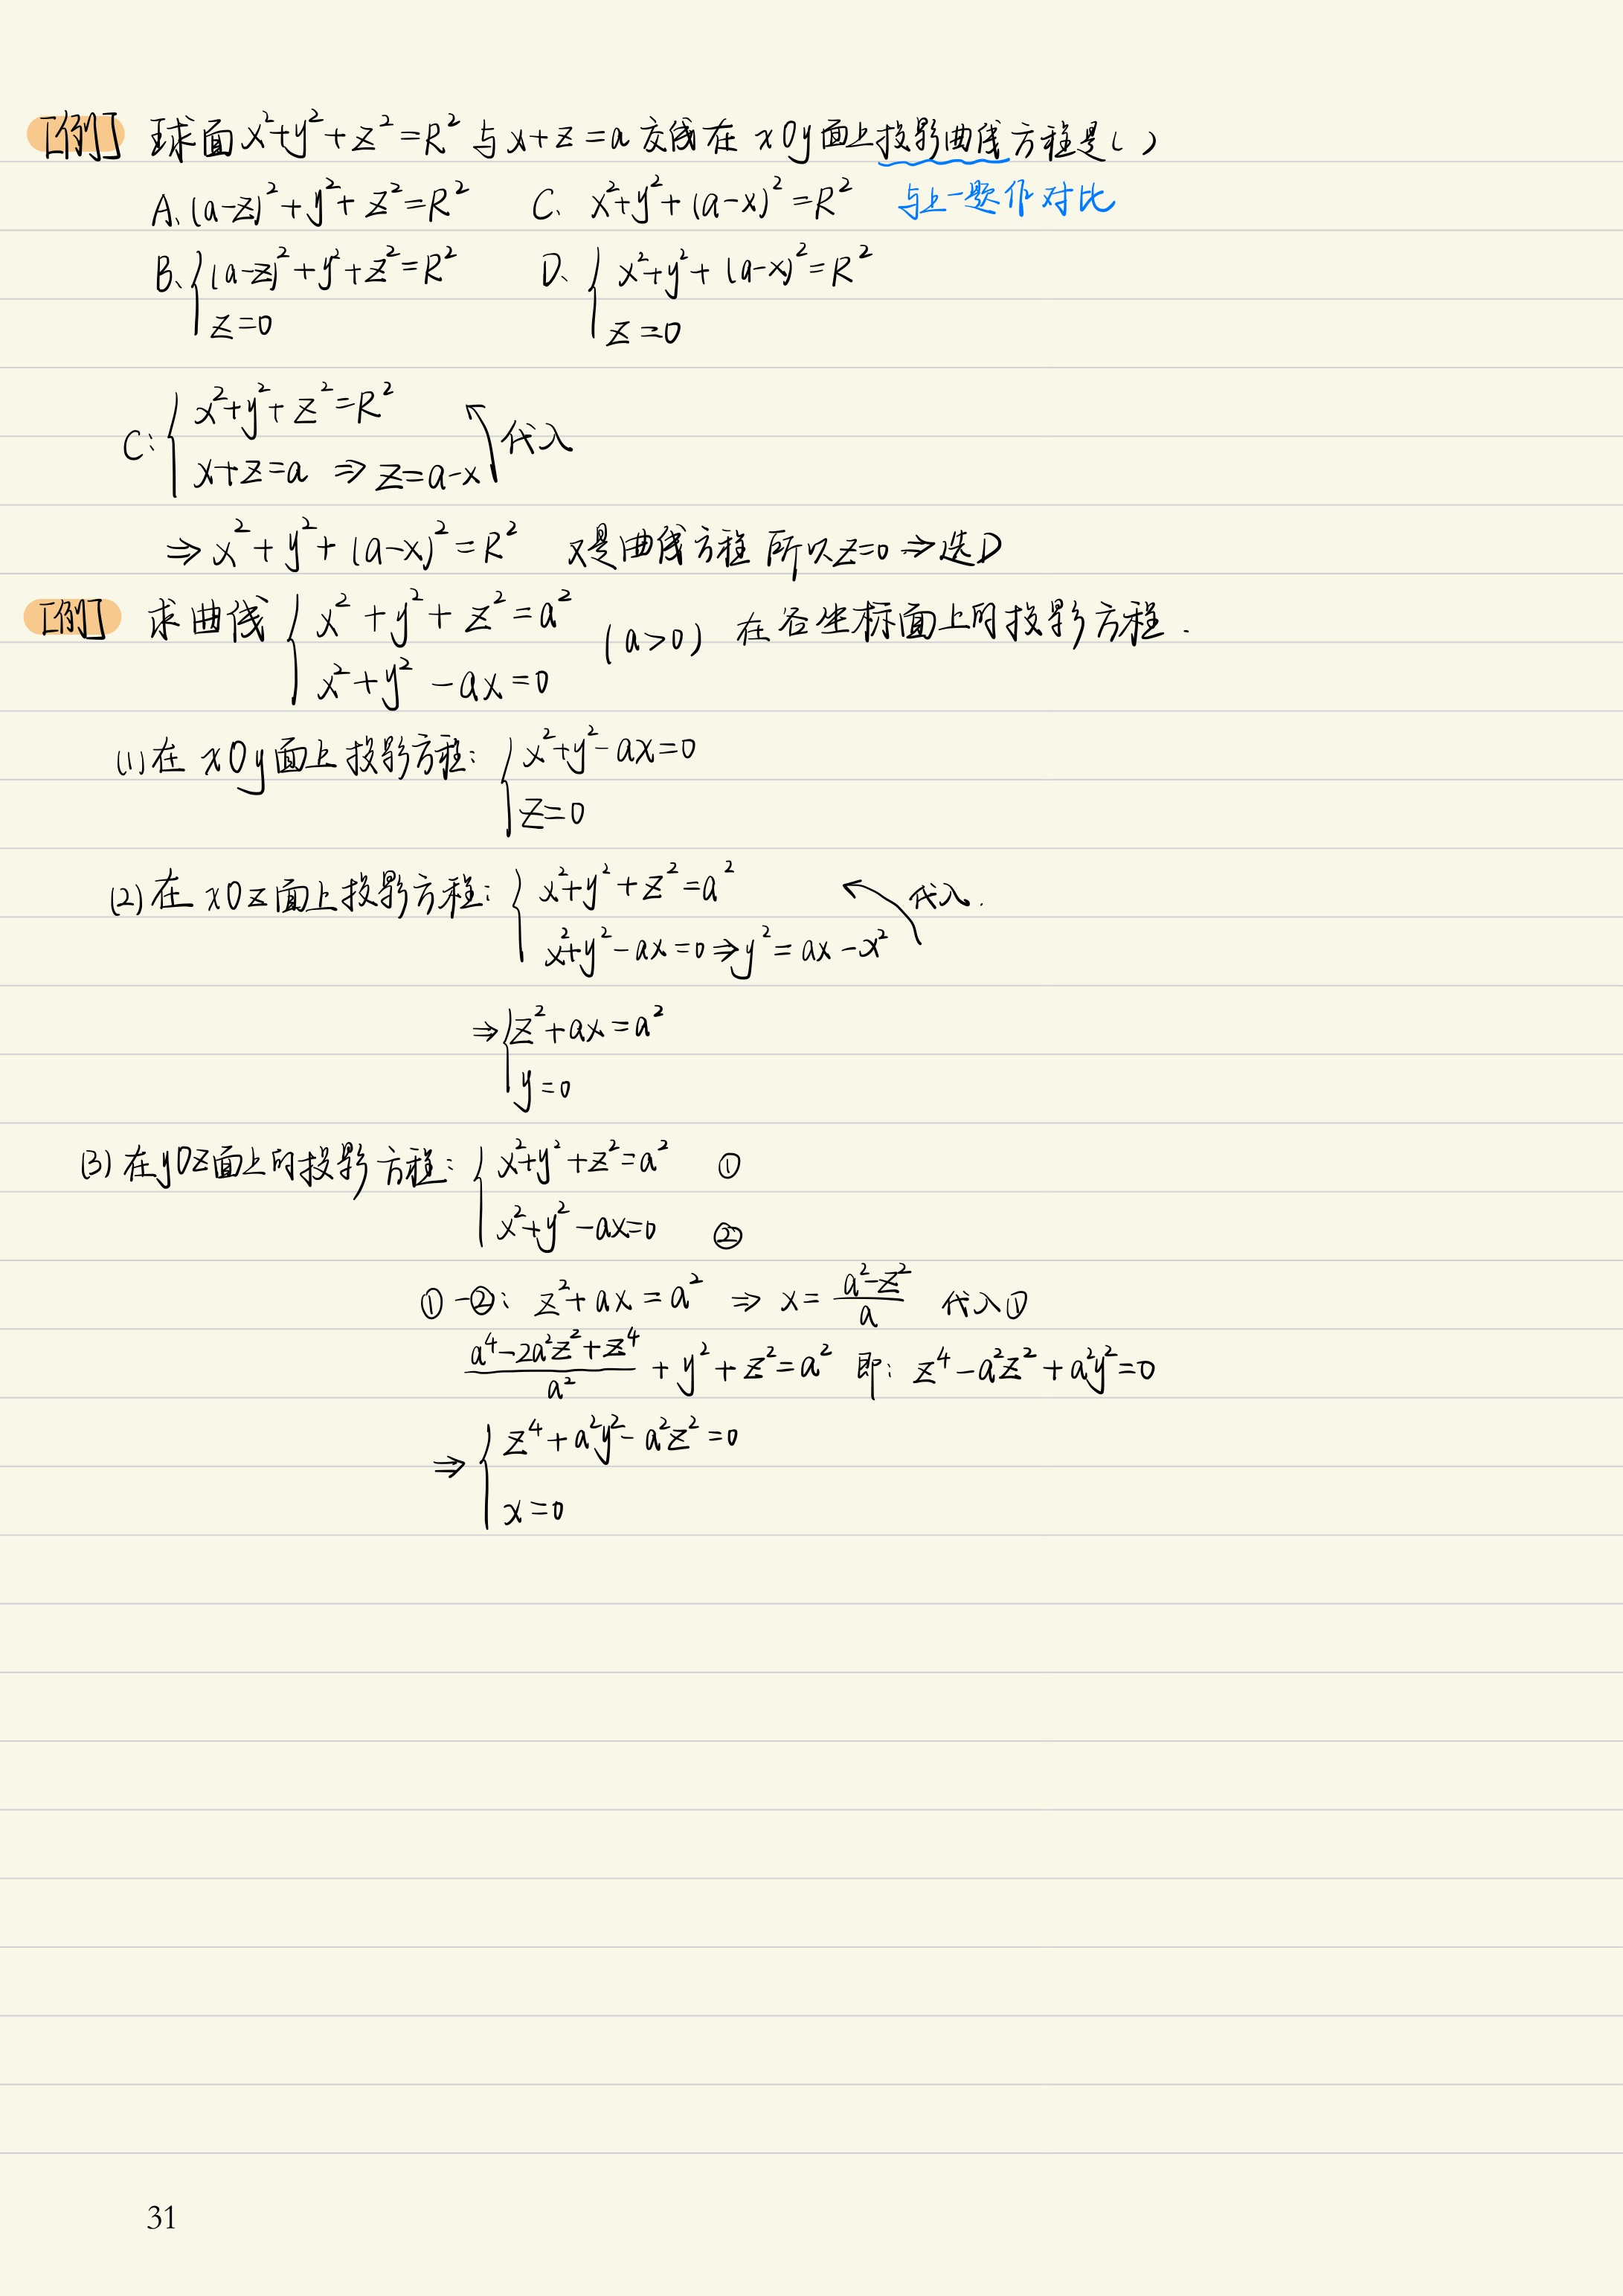 [例] 球面x²+y²+z²=R²与x+z=a交线在xOy面上投影曲线方程是( )
A、(a-z)²+y²+z²=R² C、x²+y²+(a-x)²=R² 与上一题作对比
B、{(a-z)²+y²+z²=R² D、{x²+y²+(a-x)²=R²
z=0 z=0
C:{x²+y²+z²=R²
x+z=a ⇒ z=a-x 代入
⇒ x²+y²+(a-x)²=R² 又是曲线方程 所以z=0 ⇒ 选D
[例] 求曲线{x²+y²+z²=a² (a>0) 在各坐标面上的投影方程.
x²+y²-ax=0
(1)在xOy面上投影方程:{x²+y²-ax=0
z=0
(2)在xOz面上投影方程:{x²+y²+z²=a² 代入.
x²+y²-ax=0⇒y²=ax-x²
⇒{z²+ax=a²
y=0
(3)在yOz面上的投影方程:{x²+y²+z²=a² ①
x²+y²-ax=0 ②
①-②: z²+ax=a² ⇒ x=(a²-z²)/a 代入①
(a⁴-2a²z²+z⁴)/a²+y²+z²=a² 即: z⁴-a²z²+a²y²=0
⇒{z⁴+a²y²-a²z²=0
x=0
31